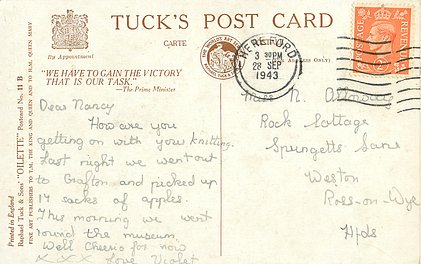 TUCK'S POST CARD
CARTE
By Appointment
"WE HAVE TO GAIN THE VICTORY
THAT IS OUR TASK."
—The Prime Minister
HEREFORD
3 30 PM
28 SEP
1943
POSTAGE
REVENUE
Dear Nancy
How are you
getting on with your knitting.
Last night we went out
to Grafton and picked up
14 sacks of apples.
This morning we went
round the museum.
Well Cheerio for now
x x x Love Violet
Miss N.
Rock Cottage
Spungetts Lane
Weston
Ross-on-Wye
Hfds
Printed in England
Raphael Tuck & Sons' "OILETTE" Postcard No. 11 B
FINE ART PUBLISHERS TO T.M. THE KING AND QUEEN AND TO H.M. QUEEN MARY